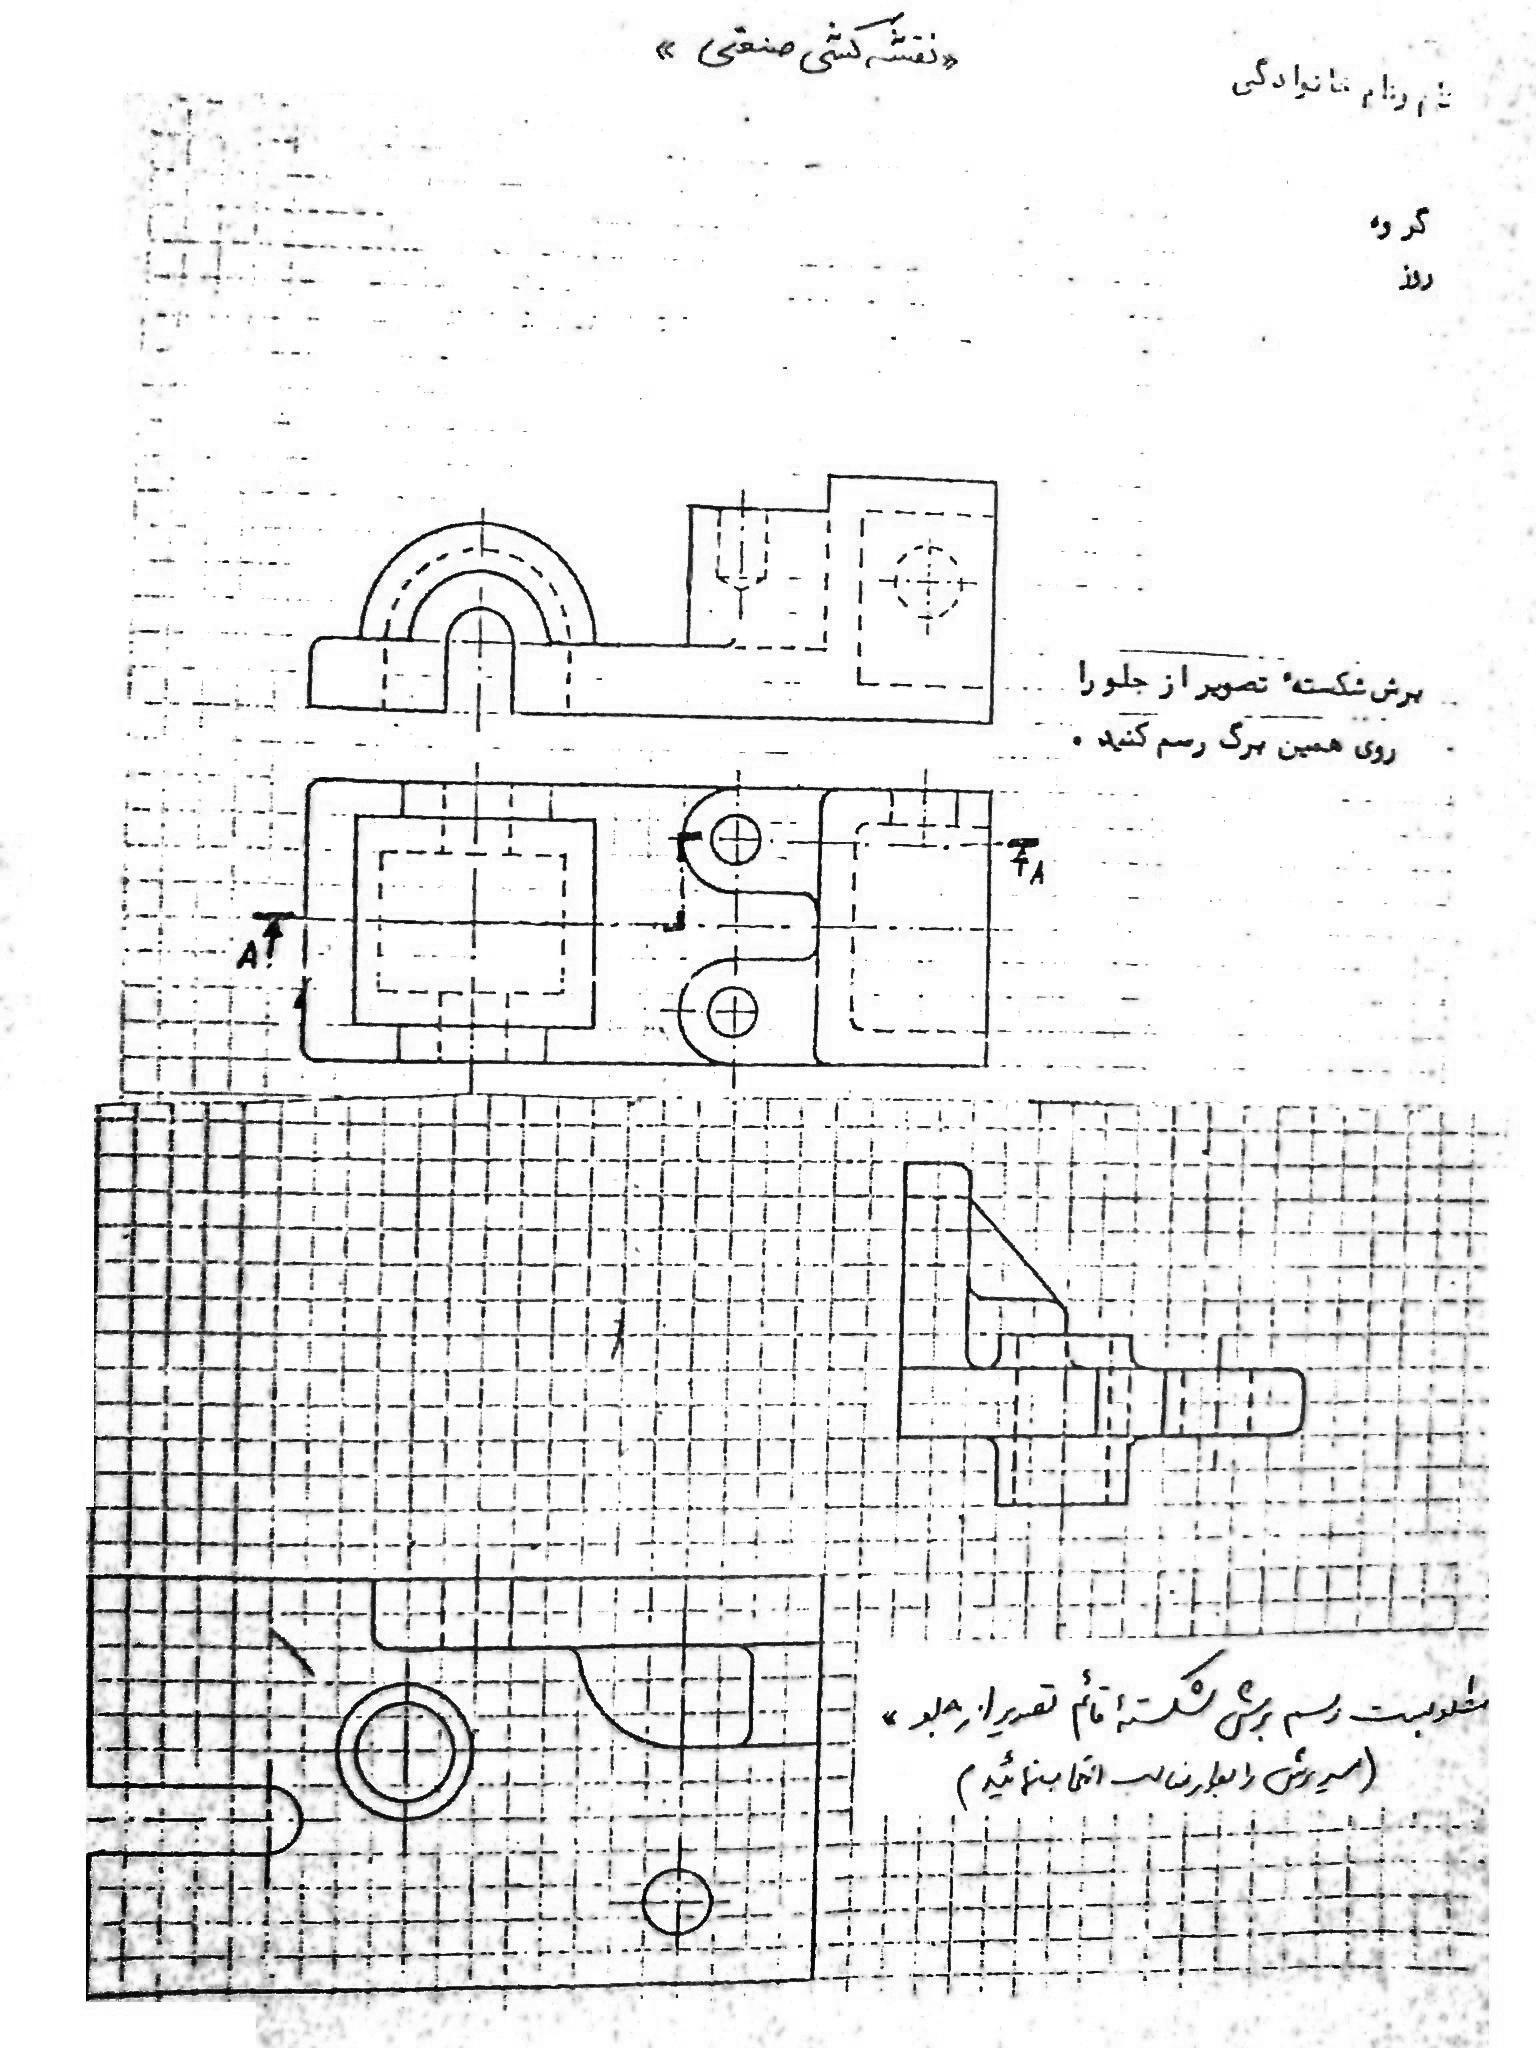 «نقشه کشی صنعتی»
نام و نام خانوادگی
گروه
روز
برش شکستهٔ تصویر از جلو را
روی همین برگ رسم کنید.
A
A
مطلوبست رسم برش شکستهٔ قائم تصویر از جلو»
(مسیر برش را بطور مناسب انتخاب نمائید)